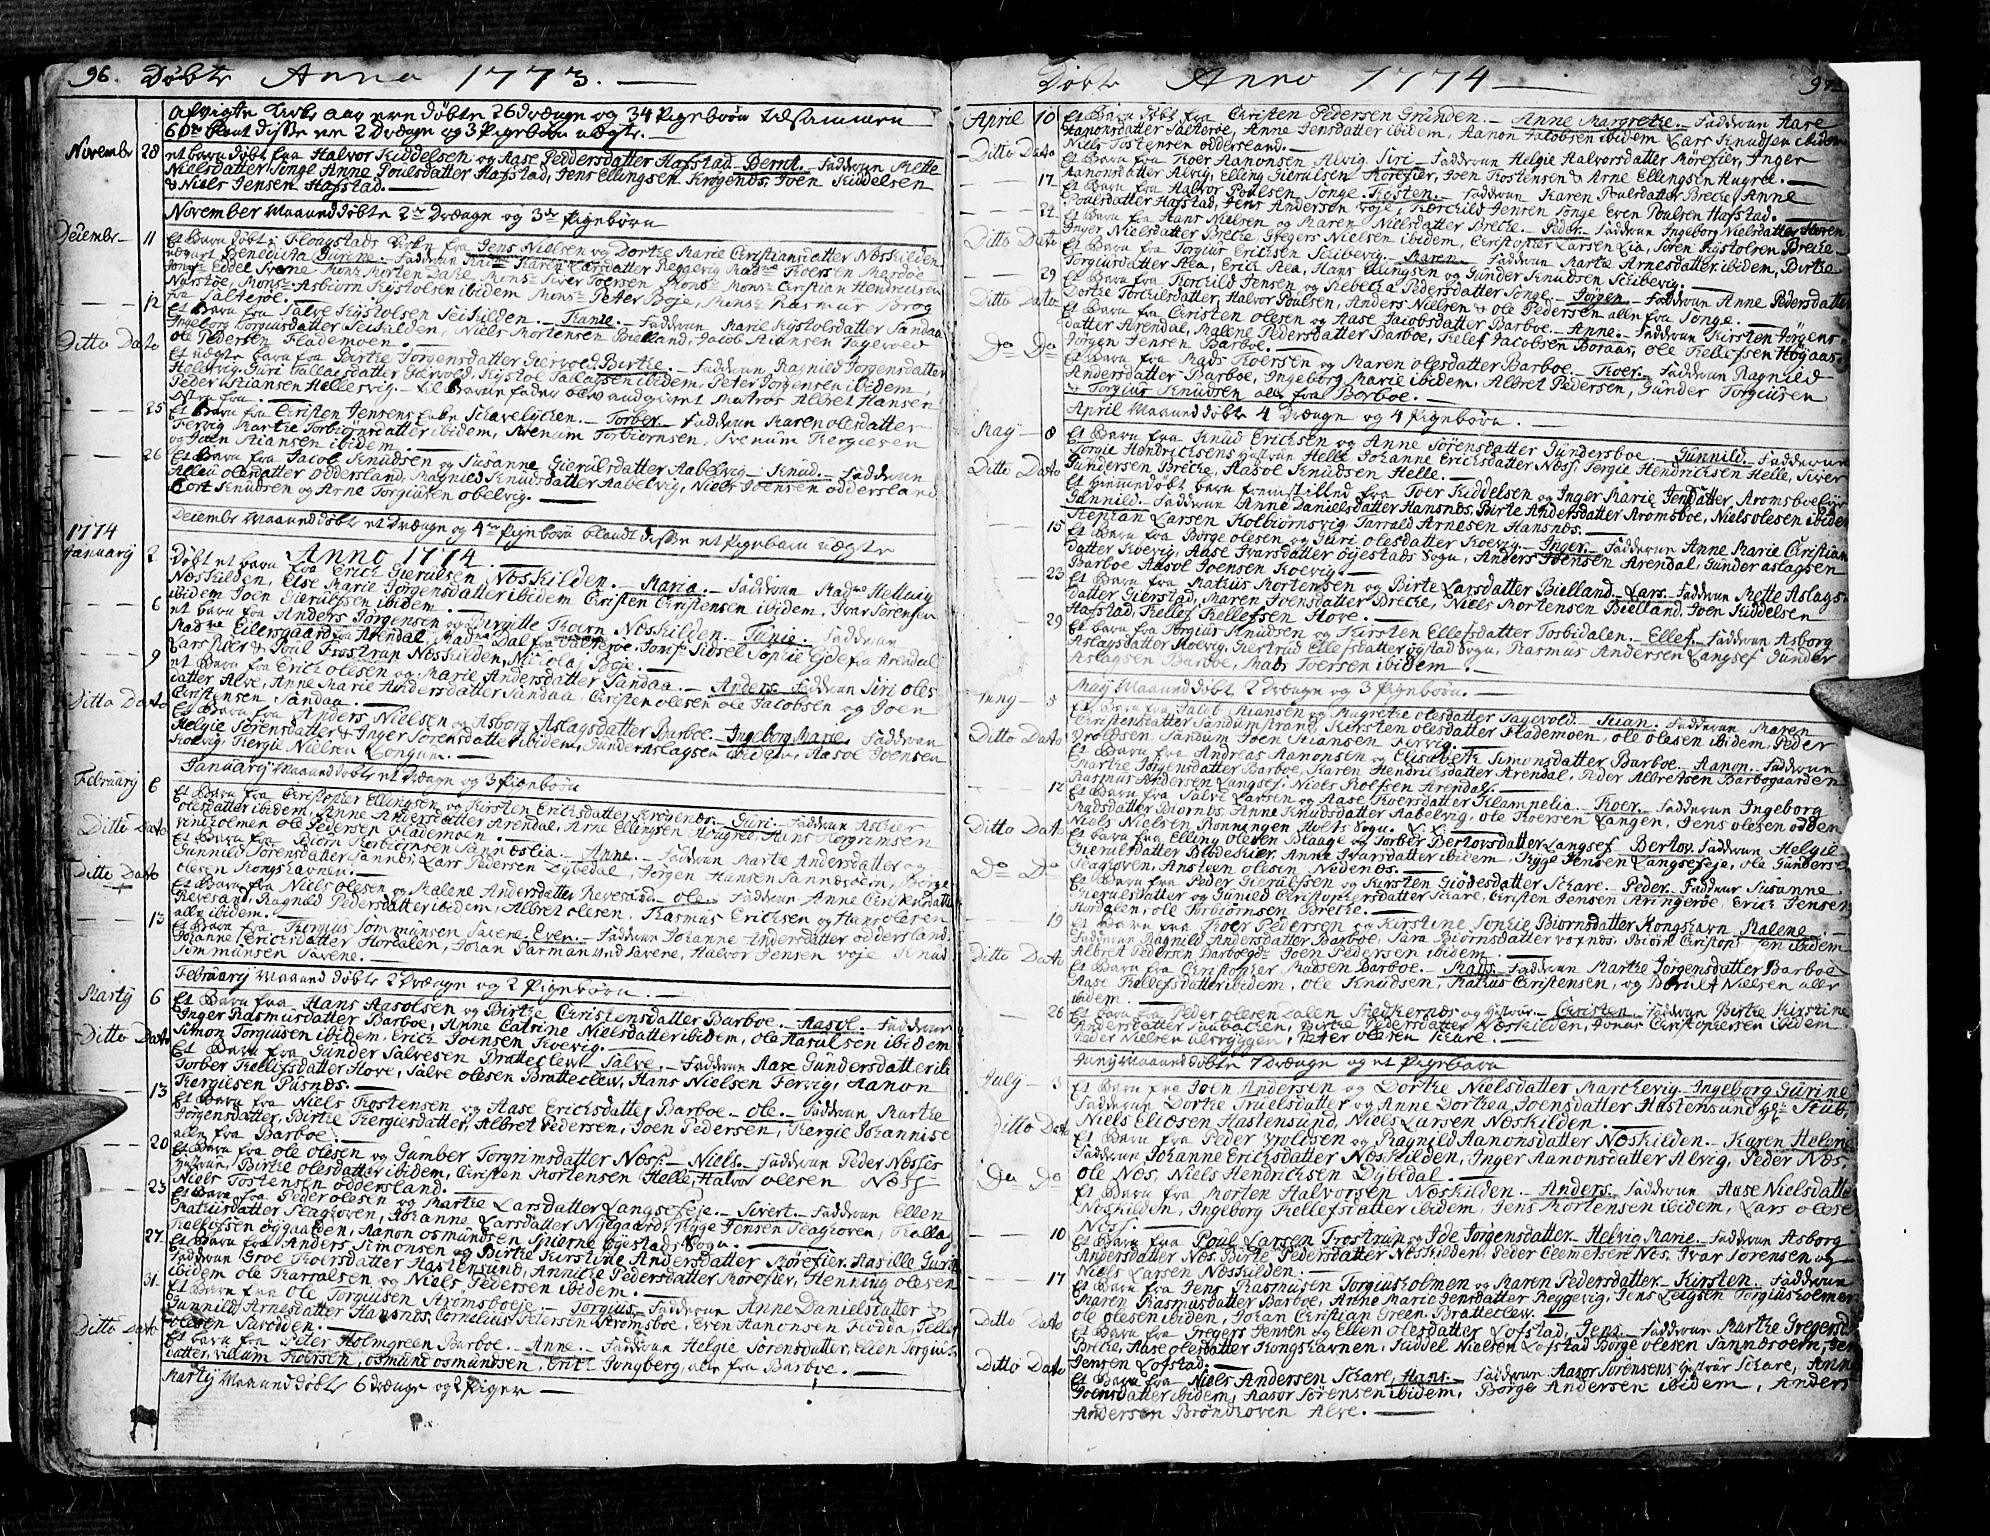 96. Døbte Anno 1773.
Afvigte Kirke aar ere døbte 26 drænge og 34 Pigebørn tilsammen
60 blant disse ere 2 Drænge og 3 Pigebørn uægte.
Novembr 28 et barn døbt fra Halvor Kiddelsen og Aase Peddersdatter Hafstad. Bernt. Fadderne Mette
Nielsdatter Songe Anne Poulsdatter Hafstad, Jens Ellingsen Krøgenes, Joen Kiddelsen
& Niels Jensen Hafstad.
November Maaned døbte 2 Drænge og 3 Pigebørn
Decembr 11 Et Barn døbt i Flougstads Kirke fra Jens Nielsen og Dorthe Marie Christiansdatter Næskilden
Benedicta Gurine. Fadderne Karen Larsdatter Reggevig Mad Koersen Mardøe
Narstøe, Mons Asbiørn Kystolsen ibidem Mons Peter Boje, Mons Rasmus
fra Salterøe.
12 Et Barn fra Salve Kystolsen Seikilden. Fadderne Marie Kystolsdatter Sandaa
Ingeborg Torgiusdatter Seikilden, Niels Mortensen Bielland, Jacob Kiansen Sagevold
Ditto Dato Ole Pedersen Flademoen.
Et uægte barn fra Birthe Jørgensdatter Giervold. Birthe. Fadderne Ragnild Jorgensdatter
Hellesvig, Guri Tallaksdatter Giervold, Kystol Tallagsen ibidem, Peter Jorgensen ibidem
Peder Kiansen Hellesvig til Barne fader blev angivet Matros Albret Hansen
25 Et Barn fra Christen Jensen Torber. Fadderne Karen olesdatter
Fervig Marthe Torbiørnsdatter ibidem, Svenum Torbiørnsen, Svenum Tergiesen
og Joen Kiansen ibidem.
26 Et Barn fra Jacob Knudsen og Susanne Gierulsdatter Aabelvig. Knud. Fadderne
Olesdatter Oddersland, Magnild Knudsdatter Aabelvig, Niels Joensen Oddersland
Cort Knudsen og Arne Torgiusen Obelvig.
Decembr Maaned døbt et Dræng og 4 Pigebørn blandt disse et Pigebarn uægte
1774 Anno 1774
January 2 Døbt et barn fra Erich Gierulsen Næskilden. Maria. Fadderne Mad Hellvig
Næskilden, Else Marie Jorgensdatter ibidem Christen Christensen ibidem, Ivar Sørensen
ibidem Joen Gierulfsen ibidem.
6 et barn fra Anders Jorgensen og Birgitte Thorn Næskilden. Fadderne
Mad Eilersgaard fra Arendal, Mad Dal fra Salterøe Jomf Sidsel Sophie Gjde fra Arendal
Lars Roer & Poul Trostrup Næskilden, Nicolaj Boje.
9 et Barn fra Erich olesen og Marie Andersdatter Sandaa. Anders. Fadderne Siri oles
datter Alve, Anne Marie Andersdatter Sandaa, Christen olesen ole Jacobsen og Joen
Ditto Dato Christensen Sandaa.
Et Barn fra Anders Nielsen og Asborg Aslagsdatter Barboe. Ingeborg Marie. Fadderne
Helgie Sørensdatter & Inger Sørensdatter ibidem, Gunder Aslagsen ibidem, Aasol Joensen
Kolvig, Tergie Nielsen Longum.
January Maaned døbt et Dræng og 3 Pigebørn
February 6 Et Barn fra Christopher Ellingsen og Kirsten Erichsdatter Krøgenes. Guri. Fadderne
olesdatter ibidem, Anne Andersdatter Arendal, Arne Ellingsen Augree Hans Torgrimsen
Ditto Dato Vindholmen ole Pedersen Flademoen.
Et Barn fra Biørn Torbiørnsen Sannæslia. Anne. Fadderne Marthe Andersdatter og
Gunnild Sørensdatter Sannæs, Lars Pedersen Dybedal, Jørgen Hansen Sannæsøen, Børge
Ditto Dato olesen Kongshavnen.
Et Barn fra Niels olesen og Malene Andersdatter Revesand. ole. Fadderne Anne Christensdatter
Revesand, Ragnild Pedersdatter ibidem, Albret olesen, Rasmus Erichsen og Hans olesen
alle ibidem.
13 Et Barn fra Tergius Sommunsen Savene. Even. Fadderne Johanne Andersdatter oddersland
Johanne Erichsdatter Hordalen, Johan Savene, Halvor Jensen voje Knud
Sommunsen Savene.
February Maaned døbte 2 Drænge og 2 Pigebørn.
Marty 6 Et Barn fra Hans Aasolsen og Birthe Christensdatter Barboe. Aasol. Fadderne
Inger Rasmusdatter Barboe, Anne Catrine Nielsdatter ibidem, ole Aasulsen ibidem
Ditto Dato Simon Torgiusen ibidem, Erich Joensen Koevig.
Et Barn fra Gunder Salvesen Bratteclew. Salve. Fadderne Aase Gundersdatter ib
Torber Kellefsdatter Hove, Salve olesen Bratteclew, Hans Nielsen Fervig, Aanon
Tergiusen Pusnæs.
13 Et Barn fra Niels Tostensen og Aase Erichsdatter Barboe. ole. Fadderne Marthe
Jørgensdatter, Birthe Tergiusdatter, Albret Pedersen, Joen Pedersen, Tergie Johannise
alle fra Barboe.
20 Et Barn fra ole olesen og Gumber Torgrimsdatter Næss. Niels. Fadderne Peder Næsses
Hustrue, Birthe olesdatter ibidem, Christen Mortensen Helle, Halvor olesen Næss
Niels Tostensen oddersland.
23 Et Barn fra Peder olesen og Marthe Larsdatter Langsefeje. Sivert. Fadderne Ellen
Mathiisdatter Seaghoven, Johanne Larsdatter Nylgaard, Tygge Jensen Seaghoven, Tallag
Kellefsen Øygaarden, Aanon osmundsen Gierne øyestads Sogn.
27 Et Barn fra Anders Simonsen og Birthe Kirstine Andersdatter Morefier. Ansille Gurine
Fadderne Groe Toersdatter Hastensund, Annicke Pedersdatter Mørefier, Henning olesen
ibidem ole Harralsen og Niels Pedersen ibidem.
31. Et Barn fra Ole Torgiusen Strømsboeje. Torgius. Fadderne Anne Danielsdatter &
Gunnild Arnesdatter Hansnæs, Cornelius Petersen Stromsboe, Even Aanonsen Flodda, Tellef
Ditto Dato olesen Saroddn.
Et barn fra Peter Holmgreen Barboe. Anne. Fadderne Helgie Sørensdatter, Ellen Torgius
datter, villum Thoersen, osmund osmundsen, Erich Ljungberg, alle fra Barboe.
Marty Maaned døbt 6 drænge og 2 Piger
Døbte Anno 1774 97
April 10 Et Barn døbt fra Christen Pedersen Grunden. Anne Margrethe. Fadderne Aase
Aanonsdatter Salterøe, Anne Jensdatter ibidem, Aanon Jacobsen ibidem Lars Knudsen ibidem
Niels Tostensen oddersland.
Ditto Dato Et Barn fra Toer Aanonsen Alvig. Siri. Fadderne Helgie Halvorsdatter Mørefier, Inger
Aanonsdatter Alvig, Elling Gierulsen Morefier, Joen Tostensen & Arne Ellingsen Augree.
17. Et Barn fra Halvor Poulsen Songe. Tosten. Fadderne Karen Poulsdatter Breche Anne
Poulsdatter Hafstad, Jens Andersen voje, Torchild Jensen Songe Even Poulsen Hafstad.
24 Et Barn fra Hans Nielsen og Maren Nielsdatter Breche. Peder. Fadderne Ingeborg Nielsdatter
Inger Nielsdatter Breche, Gregers Nielsen ibidem, Christopher Larsen Lia, Søren Kystolsen Breche
Ditto Dato Et Barn fra Torgius Erichsen Schibevig. Maren. Fadderne Marthe Arnesdatter ibidem, Birthe
Torgiusdatter Aea, Erich Aea, Hans Ellingsen og Gunder Knudsen Scibevig.
29 Et Barn fra Torchild Jensen og Rebecha Pedersdatter Songe. Jørgen. Fadderne Anne Pedersdatter
Dorthe Torchilsdatter, Halvor Poulsen, Anders Nielsen & ole Pedersen alle fra Songe.
Ditto Dato Et Barn fra Christen olesen og Aase Jacobsdatter Barboe. Anne. Fadderne Kirsten Jørgens
datter Arendal, Malene Pedersdatter Barboe, Kelef Jacobsen Boraas, ole Kellefsen Høgaas
Jørgen Jensen Barboe.
Do Do Et Barn fra Mads Toersen og Maren olesdatter Barboe. Toer. Fadderne Ragnild
Andersdatter Barboe, Ingeborg Marie ibidem, Albret Pedersen, Gunder Torgiusen
& Torgius Knudsen alle fra Barboe.
April Maaned døbte 4 Drænge og 4 Pigebørn.
May 8 Et Barn fra Knud Erichsen og Anne Sørensdatter Gundersboe. Gunnild. Fadderne
Torgie Hendrichsens Hustrue Helle Johanne Erichsdatter Næss, Torgie Hendrichsen Helle, Siver
Gundersen Breche, Aasol Knudsen Helle.
Ditto Dato Et hiemedøbt barn fremstilled fra Toer Kiddelsen og Inger Marie Jensdatter Stromsboe
Gunnild. Fadderne Anne Danielsdatter Hansnæs, Birte Andersdatter Stromsboe, Niels olesen ibidem
Stephan Larsen Kolbiørnsvig, Tarrald Arnesen Hansnæs.
15 Et Barn fra Børge olesen og Guri olesdatter Koevig. Inger. Fadderne Anne Marie Christian
datter Koevig, Aase Ivarsdatter øyestads Sogn, Anders Joensen Arendal, Gunder aslagsen
Barboe Aasol Joensen Koevig.
23 Et Barn fra Mathis Mortensen og Birte Larsdatter Bielland. Lars. Fadderne Mette Aslags
datter Gierstad, Maren Joensdatter Breche, Niels Mortensen Bielland, Joen Kiddelse
Hafstad, Kellef Kellefsen Hove.
29 Et Barn fra Torgius Knudsen og Kirsten Ellefsdatter Tosbidalen. Ellef. Fadderne Asborg
Aslagsdatter Koevig, Giertrud Ellefsdatter øystad Sogn, Rasmus Andersen Langsef Gunder
Aslagsen Barboe, Mads Toersen ibidem.
May Maaned døbt 2 Drænge og 3 Pigebørn.
Juny 5 Et Barn fra Jacob Kiansen og Magrethe olesdatter Sagevold. Kian. Fadderne Maren
Christensdatter Sandumstrand, Kirsten olesdatter Flademoen, ole olesen ibidem, Peder
Vroldsen Sandum Joen Kiansen Fervig.
Ditto Dato Et Barn fra Andreas Aanonsen og Elisabeth Simonsdatter Barboe. Aanon. Fadderne
Marthe Jørgensdatter Barboe, Karen Hendrichsdatter Arendal, Peder Albretsen Barbogaarden
Rasmus Andersen Langsef, Niels Rolfsen Arendal.
12 Et Barn fra Salve Larsen og Aase Toersdatter Klampelia. Toer. Fadderne Ingeborg
Madsdatter Biornes, Anne Knudsdatter Aabelvig, ole Toersen Langen, Jens olesen odden
Niels Nielsen Ronningen Holts Sogn.
Ditto Dato Et barn fra Elling olesen Blaage og Torber Bertovsdatter Langsef Bertov. Fadderne Helgie
Gierulsdatter Bibdeskier, Anne Ivarsdatter ibidem, Tygge Jensen Langsefeje, ole Gunderse
Seaghoven, Ansteen olesen Nedenæs.
Do Do Et Barn fra Peder Gierulfsen og Kirsten Giødesdatter Schare. Peder. Fadderne Susanne
Gierulsdatter og Gunild Christophersdatter Schare, Christen Jensen Aringerøe, Erich Jensen
Hordalen, ole Torbiørnsen Breche.
19 Et Barn fra Toer Pedersen og Kirstine Sophie Biornsdatter Kongshavn. Malene.
Fadderne Ragnild Andersdatter Barboe, Sara Biørnsdatter vofnæs, Biørn Christop sen ibidem
Albret Pedersen Barboegd Joen Pedersen ibidem.
Ditto Dato Et Barn fra Christopher Madsen Barboe. Mads. Fadderne Marthe Jørgensdatter Barboe
Aase Kellefsdatter ibidem, ole Knudsen, Mathis Christensen, og Berulf Nielsen aller
ibidem.
26 Et barn fra Peder olesen Dalen Snedkernæs og Hustrue. Christen. Fadderne Birthe Kirstine
Andersdatter Saubachen, Birthe Pedersdatter Næskilden, Jonas Christophersen ibidem
Peder Nielsen ulsryggen, Peter olesen Schare.
Juny Maaned døbte 7 Drænge og et Pigebarn
July 3 Et Barn fra Joen Andersen og Dorthe Nielsdatter Marchevig. Ingeborg Gurine
Fadderne Dorthe Truelsdatter og Anne Dorthea Joensdatter Hastensund Hr Stub,
Niels Eliøsen Hastensund, Niels Larsen Næskilden.
Ditto Dato Et Barn fra Peder Vroldsen og Ragnild Aanonsdatter Næskilden. Karen Helene
Fadderne Johanne Erichsdatter Næskilden, Inger Aanonsdatter Alvig, Peder Næs,
ole Næs, Niels Hendrichsen Dybedal.
Do Do Et Barn fra Morten Halvorsen Næskilden. Anders. Fadderne Aase Nielsdatter
Næskilden, Ingeborg Kellefsdatter ibidem, Jens Mortensen ibidem, Lars olesen
Næss.
10 Et Barn fra Poul Larsen Trostrup og Ide Jorgensdatter. Helvig Marie. Fadderne Asborg
Andersdatter Næs, Birthe Pedersdatter Næskilden, Peder Clemetsen Næs, Ivar Sørensen og
Niels Larsen Næskilden.
17 Et Barn fra Jens Rasmusen Torgiusholmen og Maren Pedersdatter. Kirsten. Fadderne
Maren Rasmusdatter Barboe, Anne Marie Jensdatter Reggevig, Jens Leigsen Torgiusholmen
ole olesen ibiden, Johan Christian Green Bratteclew.
Ditto Dato Et Barn fra Gregers Jensen og Ellen olesdatter Lofstad, Jens. Fadderne Marthe Gregersd
Breche, Aase olesdatter Kongshavnen, Kiddel Nielsen Lofstad Børge olesen Sannæsøen, Jen
Jensen Lofstad.
Ditto Dato Et Barn fra Niels Andersen Schare, Hans. Fadderne Aasor Sørensens Hustrue Schare, Anne
Joensdatter ibidem, Aasor Sørensen ibidem, Børge Andersen ibidem, Anders
Andersen Brøndhoven Alve.